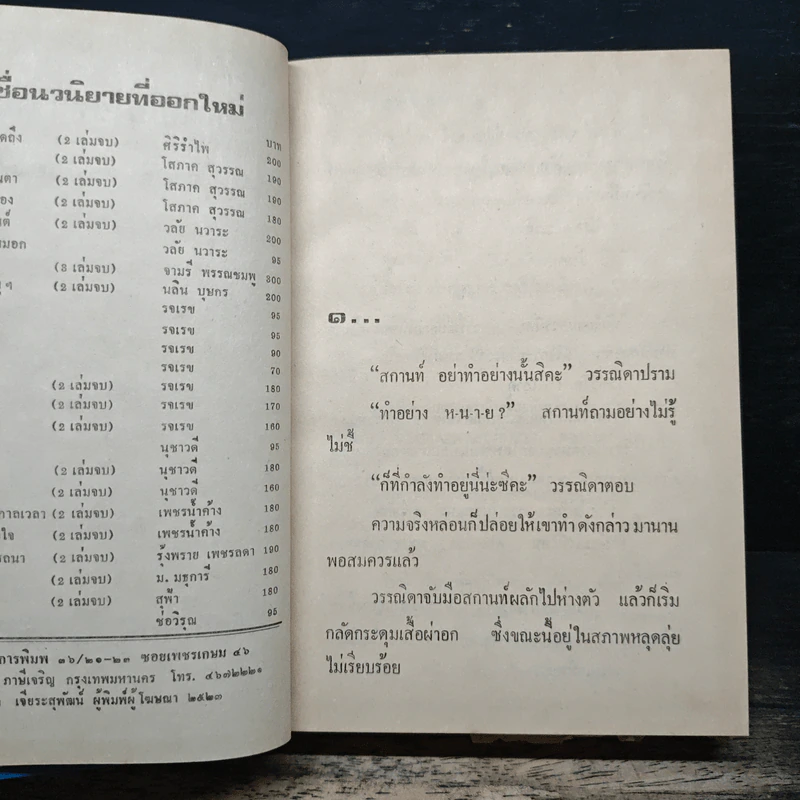 ชื่อนวนิยายที่ออกใหม่
(2 เล่มจบ) ศิริรำไพ บาท
(2 เล่มจบ) โสภาค สุวรรณ 200
(2 เล่มจบ) โสภาค สุวรรณ 190
(2 เล่มจบ) โสภาค สุวรรณ 190
(2 เล่มจบ) วลัย นวาระ 180
วลัย นวาระ 200
(3 เล่มจบ) จามรี พรรณชมพู 95
(2 เล่มจบ) นลิน บุษกร 300
รจเรข 200
รจเรข 95
รจเรข 95
รจเรข 90
(2 เล่มจบ) รจเรข 70
(2 เล่มจบ) รจเรข 180
(2 เล่มจบ) รจเรข 170
นุชาวดี 160
(2 เล่มจบ) นุชาวดี 95
(2 เล่มจบ) นุชาวดี 180
กาลเวลา (2 เล่มจบ) เพชรน้ำค้าง 160
(2 เล่มจบ) เพชรน้ำค้าง 180
(2 เล่มจบ) รุ้งพราย เพชรลดา 180
(2 เล่มจบ) ม. มธุการี 190
(2 เล่มจบ) สุฟ้า 180
ช่อวิรุณ 180
95
การพิมพ์ ๓๖/๒๑-๒๓ ซอยเพชรเกษม ๔๖
ภาษีเจริญ กรุงเทพมหานคร โทร. ๔๖๗๒๒๒๑
เจียระสุพัฒน์ ผู้พิมพ์ผู้โฆษณา ๒๕๒๓
๑...
“สกานท์ อย่าทำอย่างนั้นสิคะ” วรรณิดาปราม
“ทำอย่าง ห-น-า-ย ?” สกานท์ถามอย่างไม่รู้
ไม่ชี้
“ก็ที่กำลังทำอยู่นี่น่ะซีคะ” วรรณิดาตอบ
ความจริงหล่อนก็ปล่อยให้เขาทำ ดังกล่าว มานาน
พอสมควรแล้ว
วรรณิดาจับมือสกานท์ผลักไปห่างตัว แล้วก็เริ่ม
กลัดกระดุมเสื้อผ่าอก ซึ่งขณะนี้อยู่ในสภาพหลุดลุ่ย
ไม่เรียบร้อย